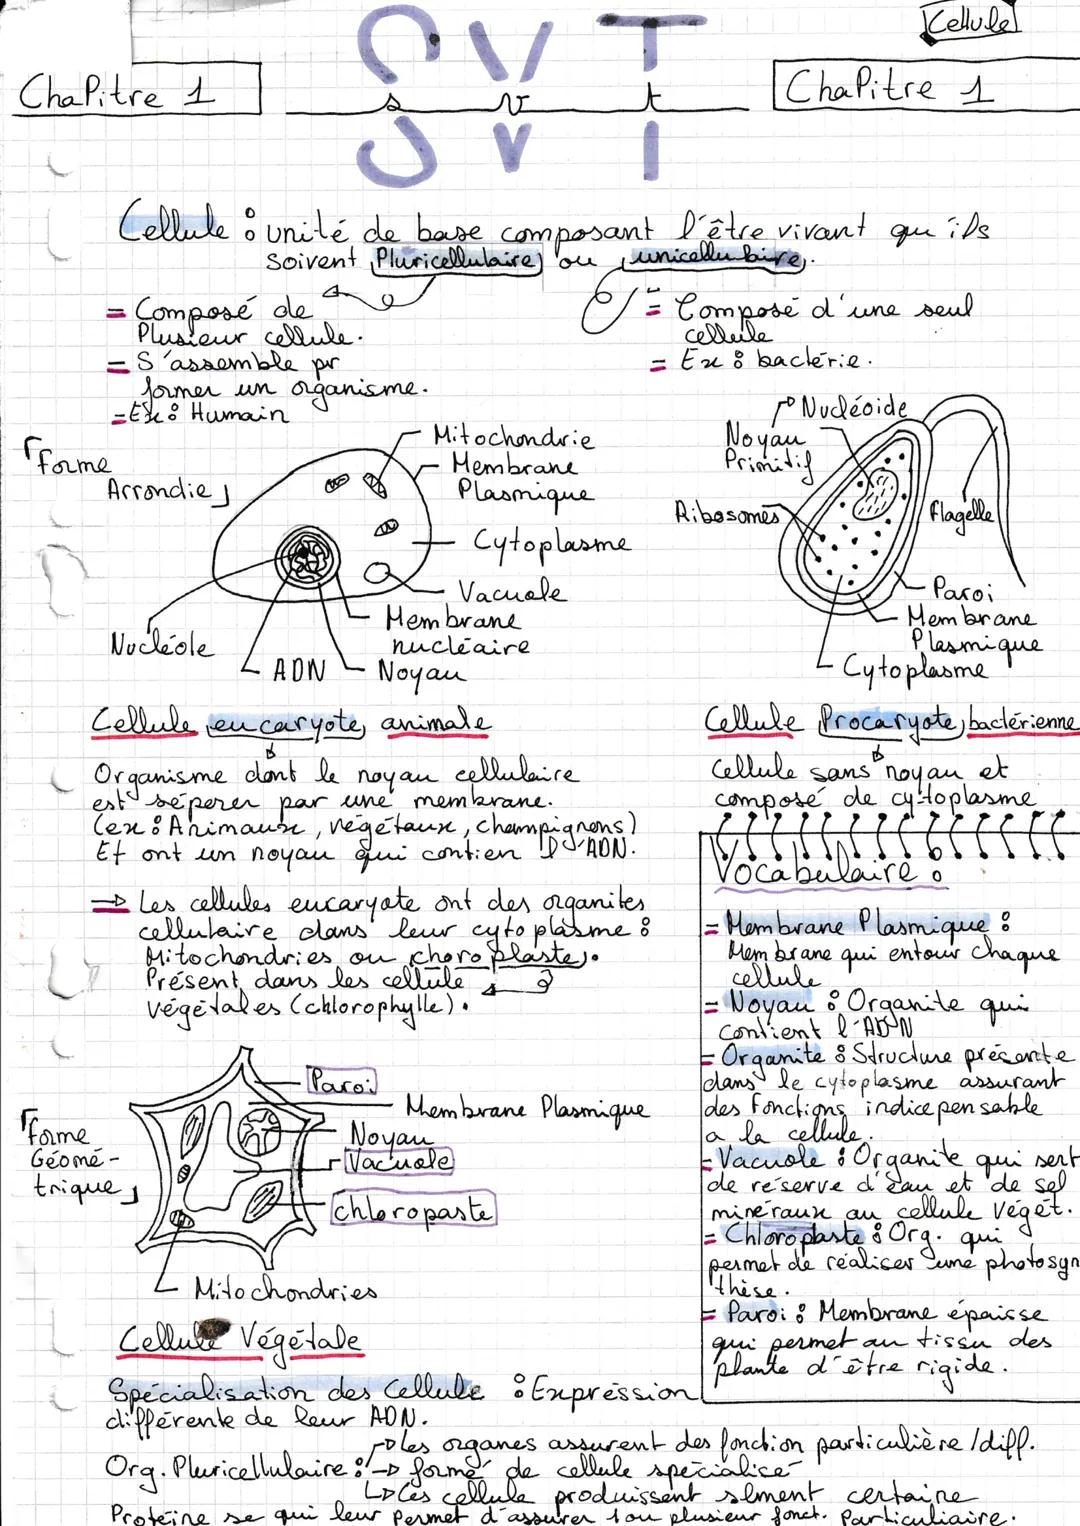 Cellule
ChaPitre 1
SVT
svt
ChaPitre 1
Cellule : unité de base composant l'être vivant qu'ils
soivent Pluricellulaire ou unicellulaire.
= Composé de
Plusieur cellule.
= S'assemble pr
former un organisme.
= Ex : Humain
= Composé d'une seul
cellule
= Ex : bactérie.
Forme
Arrondie
Mitochondrie
Membrane
Plasmique
Cytoplasme
Vacuole
Membrane
nucléaire
Noyau
ADN
Nucléole
Nucléoide
Noyau
Primitif
Ribosomes
Flagelle
Paroi
Membrane
Plasmique
Cytoplasme
Cellule eucaryote animale
Organisme dont le noyau cellulaire
est séperer par une membrane.
(ex : Animaux, végétaux, champignons)
Et ont un noyau qui contien l'ADN.
→ Les cellules eucaryote ont des organites
cellulaire dans leur cytoplasme :
Mitochondries ou choroplaste.
Présent dans les cellule
végétales (chlorophylle).
Cellule Procaryote bactérienne
Cellule sans noyau et
composé de cytoplasme
Vocabulaire :
= Membrane Plasmique :
Membrane qui entour chaque
cellule
= Noyau : Organite qui
contient l'ADN
= Organite : Structure présente
dans le cytoplasme assurant
des fonctions indicepensable
a la cellule.
- Vacuole : Organite qui sert
de réserve d'eau et de sel
minéraux au cellule véget.
= Chloroplaste : Org. qui
permet de réaliser une photosyn
thèse.
= Paroi : Membrane épaisse
qui permet au tissu des
plante d'être rigide.
Forme
Géomé-
trique
Paroi
Membrane Plasmique
Noyau
Vacuole
chloropaste
Mitochondries
Cellule Végétale
Spécialisation des Cellule : Expréssion
différente de leur ADN.
→ les organes assurent des fonction particulière/diff.
Org. Pluricellulaire : → formé de cellule spécialisé
↳ Ces cellule produissent slment certaire
Protéine se qui leur permet d'assurer 1 ou plusieur fonct. Particuliaire.